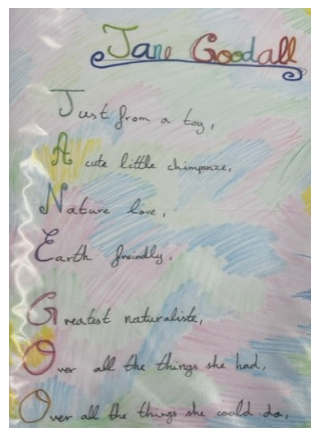 Jane Goodall
Just from a toy,
A cute little chimpanze,
Nature love,
Earth freindly,
Greatest naturaliste,
Over all the things she had,
Over all the things she could do,